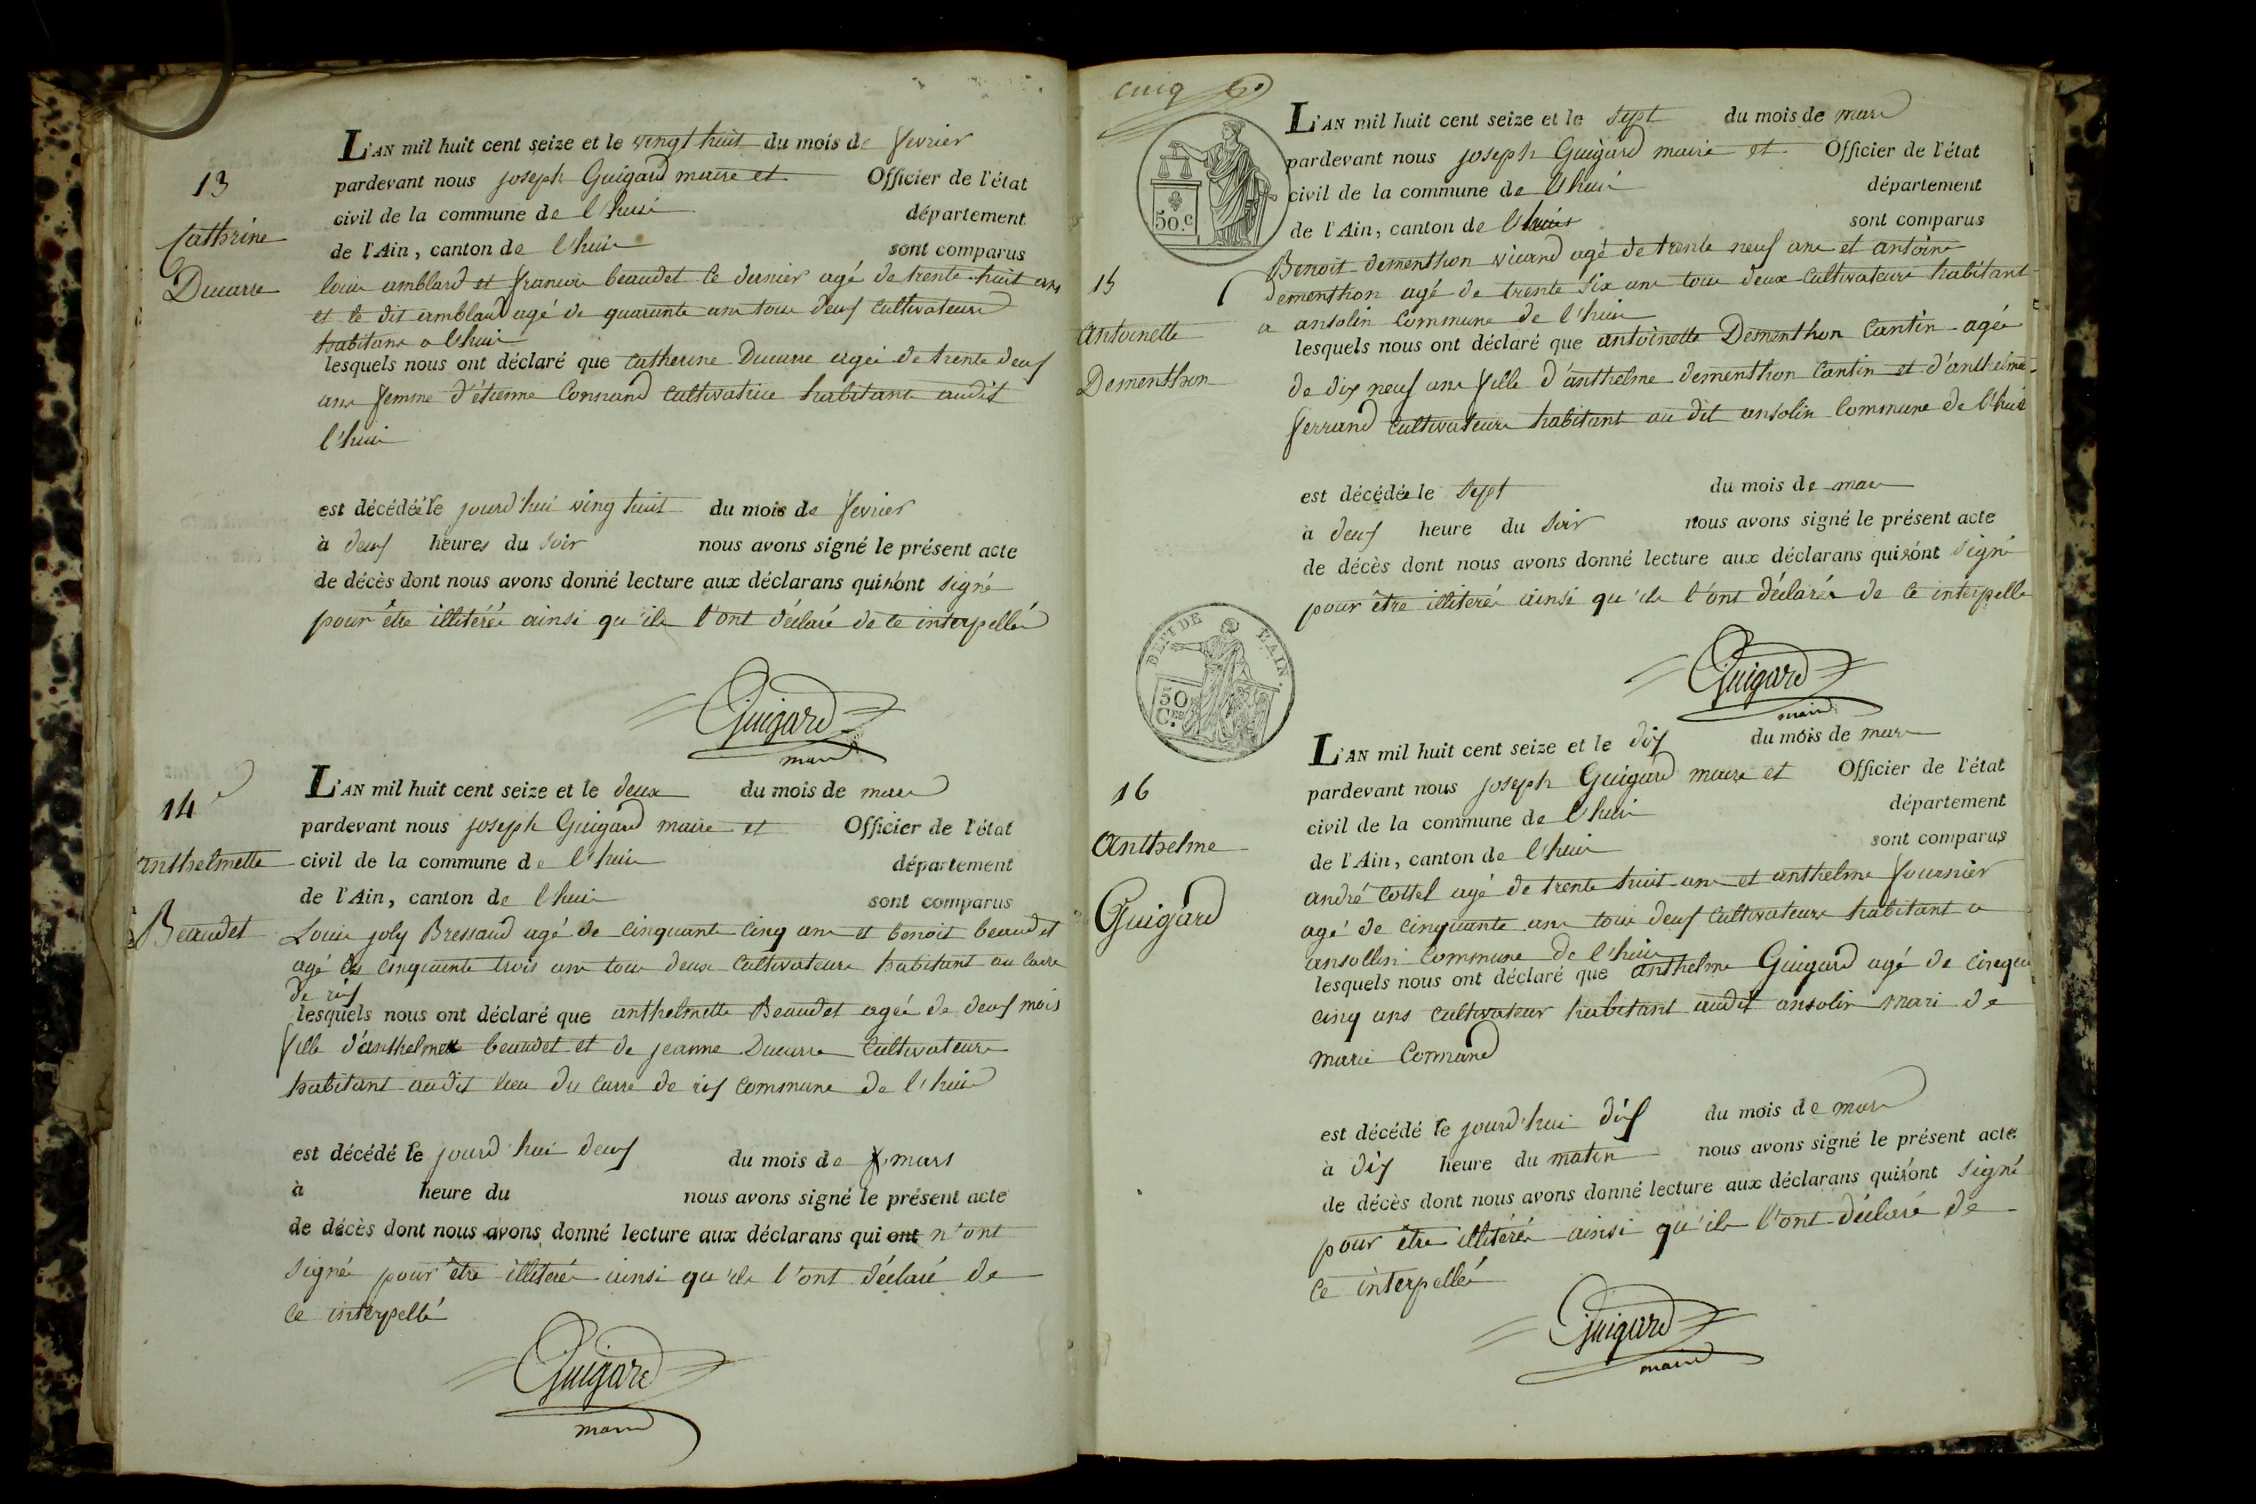 13
Cathrine
Ducarre
L'AN mil huit cent seize et le vingt huit du mois de fevrier
pardevant nous joseph Guigard maire et Officier de l'état
civil de la commune de l'huis département
de l'Ain, canton de l'huis sont comparus
louis amblard et francois beaudet le dernier agé de trente huit ans
et le dit amblard agé de quarante ans tous deux cultivateurs
habitans a l'huis
lesquels nous ont déclaré que catherine Ducarre agée de trente deux
ans femme d'étienne Connand cultivatrice habitante audit
l'huis
est décédée le jourd'hui ving huit du mois de fevrier
à deux heures du soir nous avons signé le présent acte
de décès dont nous avons donné lecture aux déclarans qui n'ont signé
pour être illitérés ainsi qu'ils l'ont déclaré de ce interpellés
Guigard
maire
14
anthelmette
Beaudet
L'AN mil huit cent seize et le deux du mois de mars
pardevant nous joseph Guigard maire et Officier de l'état
civil de la commune de l'huis département
de l'Ain, canton de l'huis sont comparus
Louis joly Bressand agé de cinquante cinq ans et benoit beaudet
agé de cinquante trois ans tous deux cultivateurs habitant au carre
de rix
lesquels nous ont déclaré que anthelmette Beaudet agée de deux mois
fille d'anthelme beaudet et de jeanne Ducarre cultivateurs
habitant audit lieu du carre de rix commune de l'huis
est décédé le jourd'hui deux du mois de mars
à heure du nous avons signé le présent acte
de décès dont nous avons donné lecture aux déclarans qui ont n'ont
signés pour être illiterés ainsi qu'ils l'ont déclaré de
ce interpellé
Guigard
maire
cinq
50.c
15
antoinette
Dementhon
L'AN mil huit cent seize et le sept du mois de mars
pardevant nous joseph Guigard maire et Officier de l'état
civil de la commune de l'huis département
de l'Ain, canton de l'huis sont comparus
Benoit dementhon vicard agé de trente neuf ans et antoine
dementhon agé de trente six ans tous deux cultivateurs habitant
a ansolin commune de l'huis
lesquels nous ont déclaré que antoinette Dementhon Cantin agée
de dix neuf ans fille d'anthelme dementhon Cantin et d'anthelme
ferrand cultivateurs habitant au dit ansolin commune de l'huis
est décédée le sept du mois de mars
à deux heure du soir nous avons signé le présent acte
de décès dont nous avons donné lecture aux déclarans qui n'ont signé
pour être illiterés ainsi qu'ils l'ont déclarés de ce interpellé
Guigard
maire
DÉPT DE L'AIN.
50
C.es
16
Anthelme
Guigard
L'AN mil huit cent seize et le dix du mois de mars
pardevant nous joseph Guigard maire et Officier de l'état
civil de la commune de l'huis département
de l'Ain, canton de l'huis sont comparus
andré cottel agé de trente huit ans et anthelme fournier
agé de cinquante ans tous deux cultivateurs habitant a
ansollin commune de l'huis
lesquels nous ont déclaré que anthelme Guigard agé de cinqu
cinq ans cultivateur habitant audit ansolin mari de
marie Connand
est décédé le jourd'hui dix du mois de mars
à dix heure du matin nous avons signé le présent acte
de décès dont nous avons donné lecture aux déclarans qui n'ont signé
pour être illitérés ainsi qu'ils l'ont déclaré de
ce interpellés
Guigard
maire